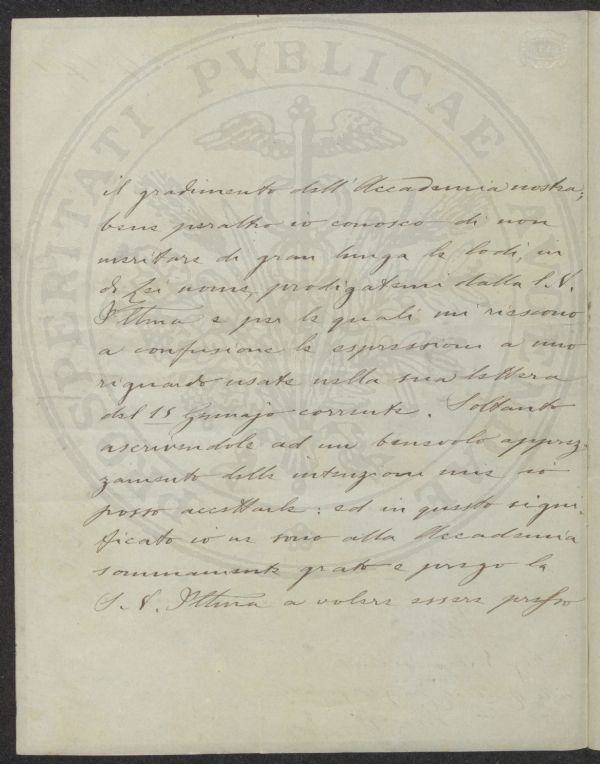 PROSPERITATI PVBLICAE
il gradimento dell'Accademia nostra;
bene peraltro io conosco di non
meritare di gran lunga le lodi, in
di Lei nome, prodigatemi dalla S.V.
Illma e per le quali mi riescono
a confusione le espressioni a mio
riguardo usate nella sua lettera
del 15 Gennajo corrente. Soltanto
ascrivendole ad un benevolo apprez-
zamento delle intenzioni mie io
posso accettarle: ed in questo signi-
ficato io ne sono alla Accademia
sommamente grato e prego la
S.V. Illma a volere essere presso